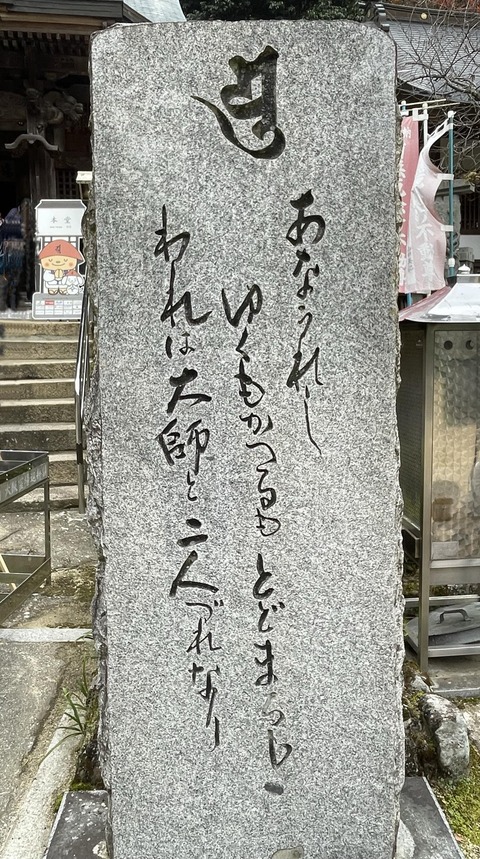 本堂
あなうれし
ゆくもかへるも とどまるも
われは大師と 二人づれなり